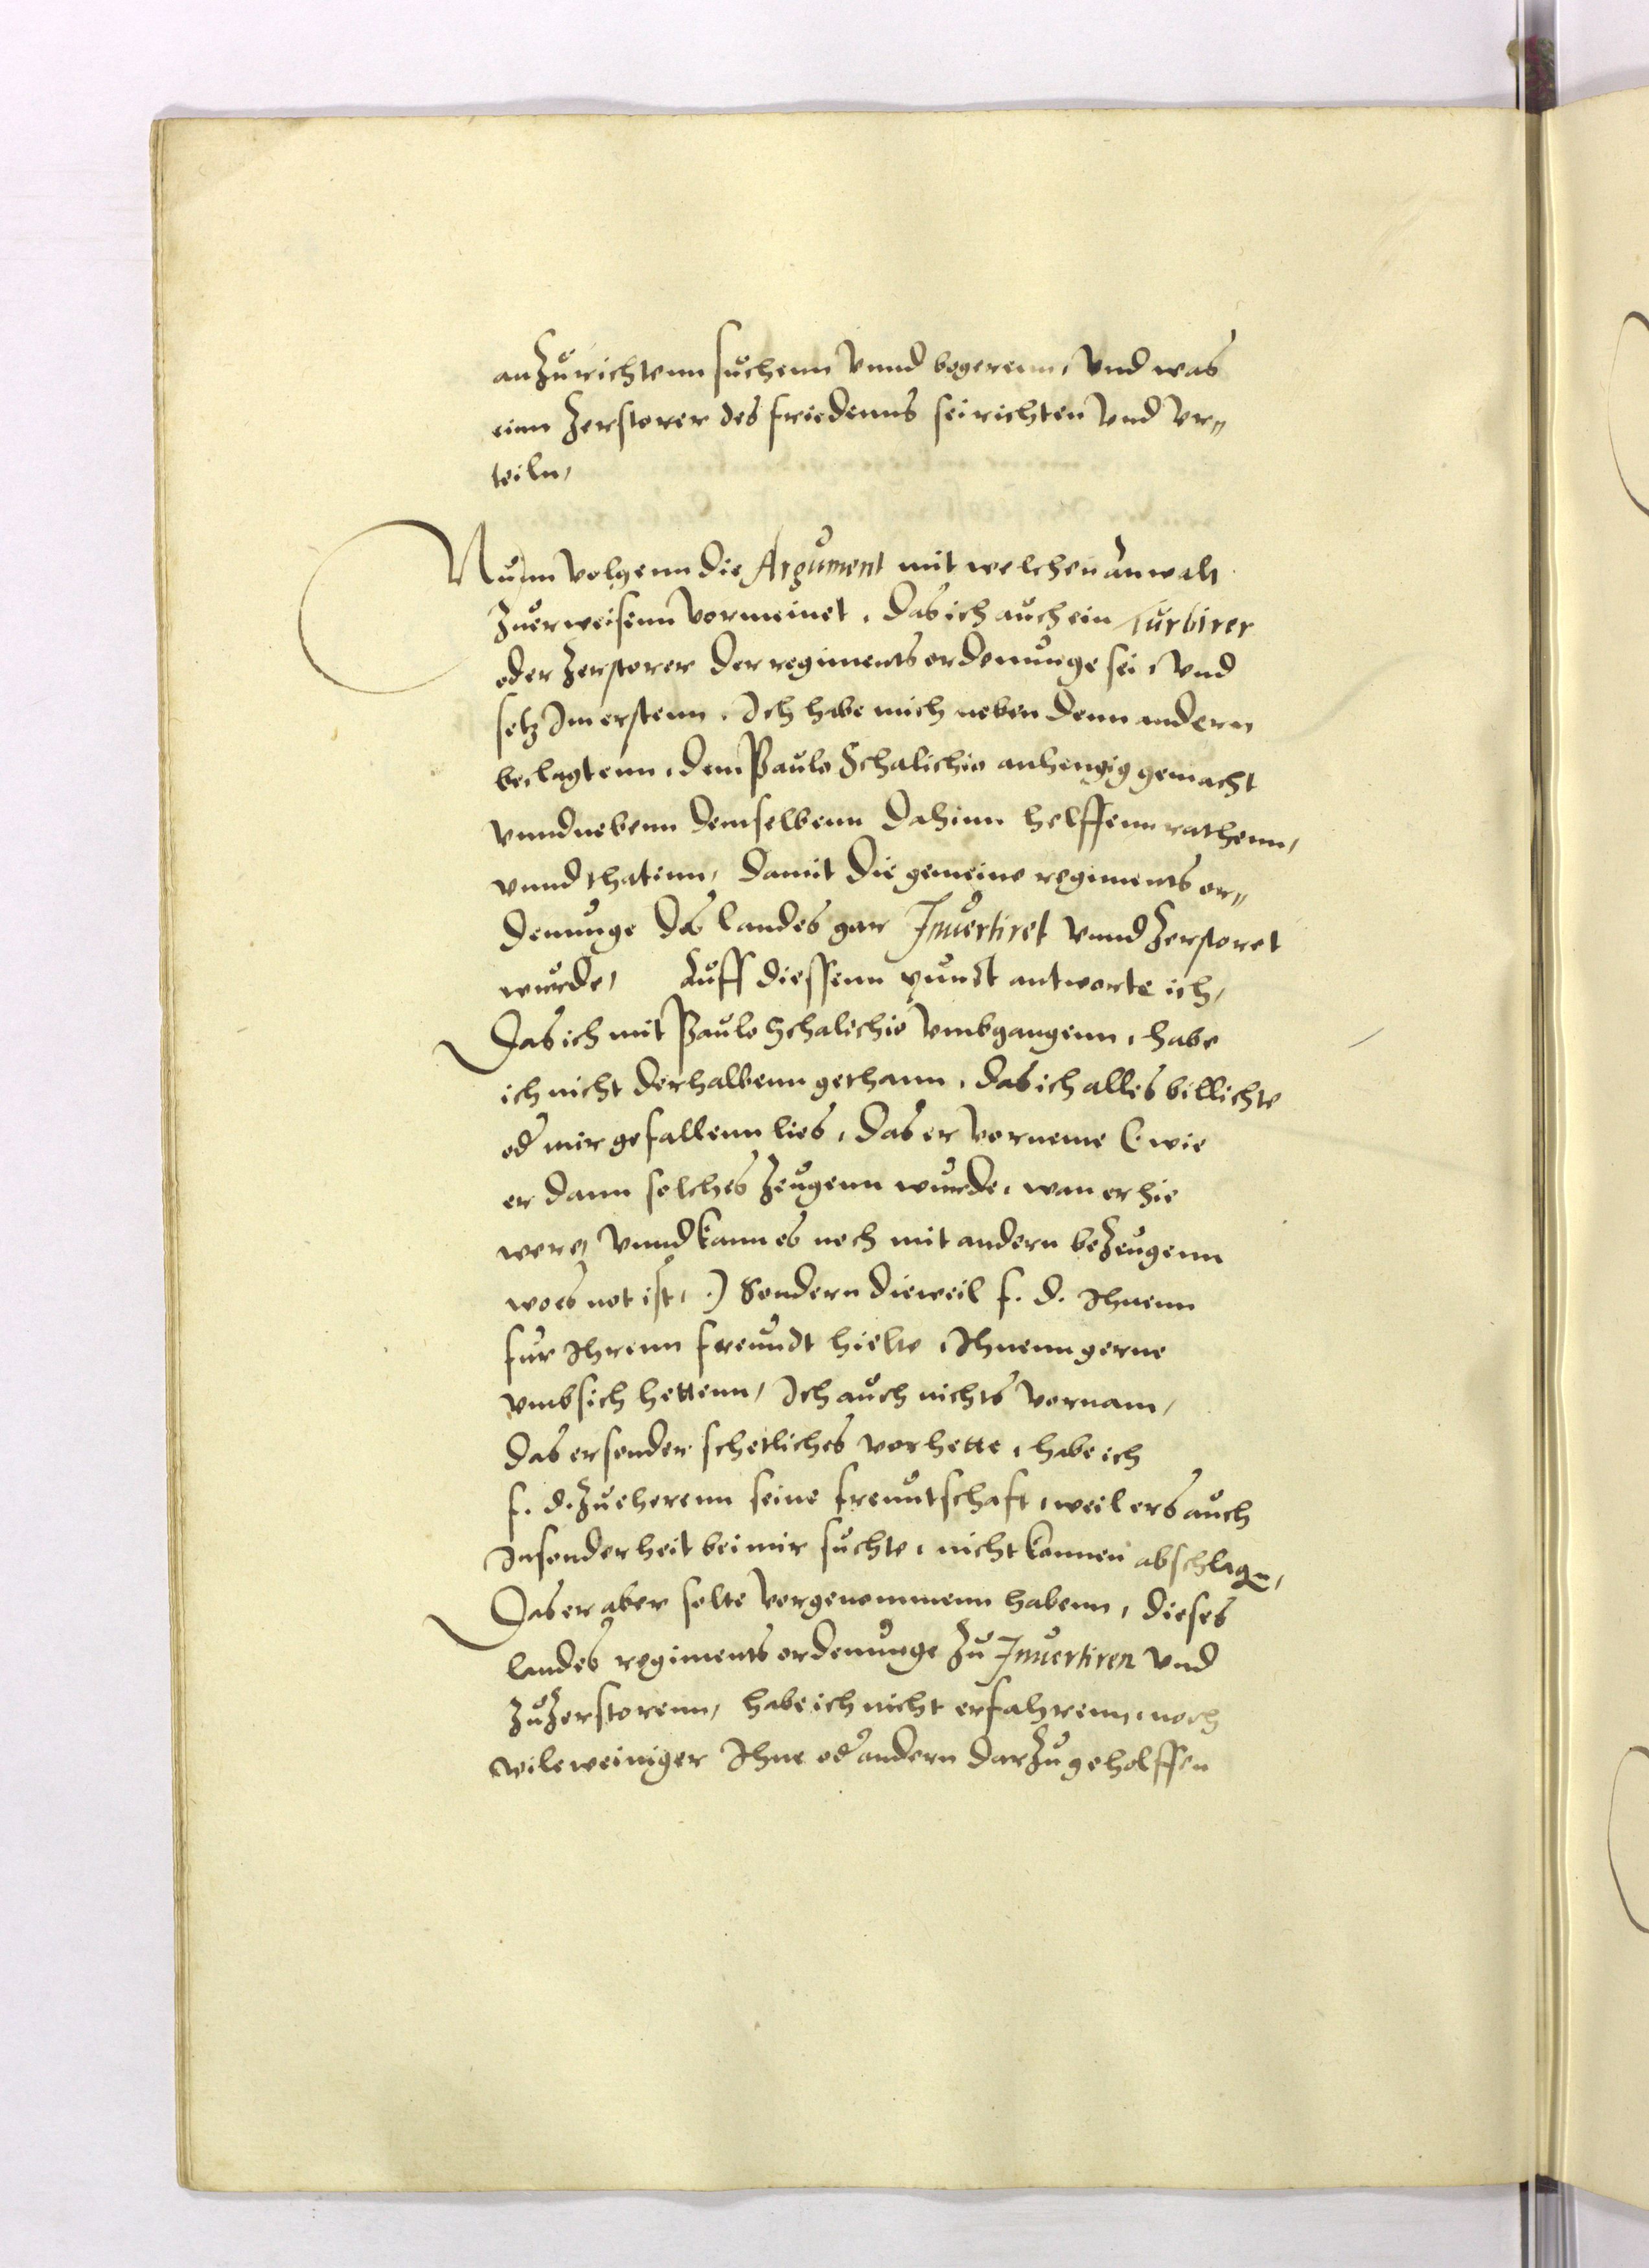 anzurichtenn suchenn vnnd begerenn, vnd was
einn zerstorer des friedenns sei richten vnd vr=
teiln,
Nunn volgenn die Argument mit welchen anwalt
zuerweisenn vormeinet, das ich auch ein turbirer
oder zerstorer der regiments ordenunge sei, vnd
setz Im erstenn, Ich habe mich neben denn andern
beclagtenn, dem Paulo Schalichio anhengig gemacht
vnnd nebenn demselbenn dahinn helffenn rathenn,
vnnd thatenn, damit die gemeine regiments or=
denunge des landes gar Inuertiret vnnd zerstoret
wurde, Auff diessenn punct antworte ich,
Das ich mit Paulo Schalichio vmbgangenn, habe
ich nicht derhalbenn gethann, das ich alles billichte
od mir gefallenn lies, das er vorneme (wie
er dann solches zeugenn wurde, wan er hie
were, vnnd kann es noch mit andern bezeugenn
wo es not ist,) Sondern dieweil f. d. Ihnenn
fur Ihrenn freundt hielte, Ihnenn gerne
vmb sich hettenn, Ich auch nichts vornam,
das er sonder schetliches vorhette, habe ich
f. d. zu eherenn seine freuntschaft, weil ers auch
Insonderheit bei mir suchte, nicht konnen abschlagen,
Das er aber solte vorgenommenn habenn, dieses
landes regiments ordenunge zu Inuertiren vnd
zu zerstorenn, habe ich nicht erfahrenn, noch
vile weiniger Ihne od andern darzu geholffen